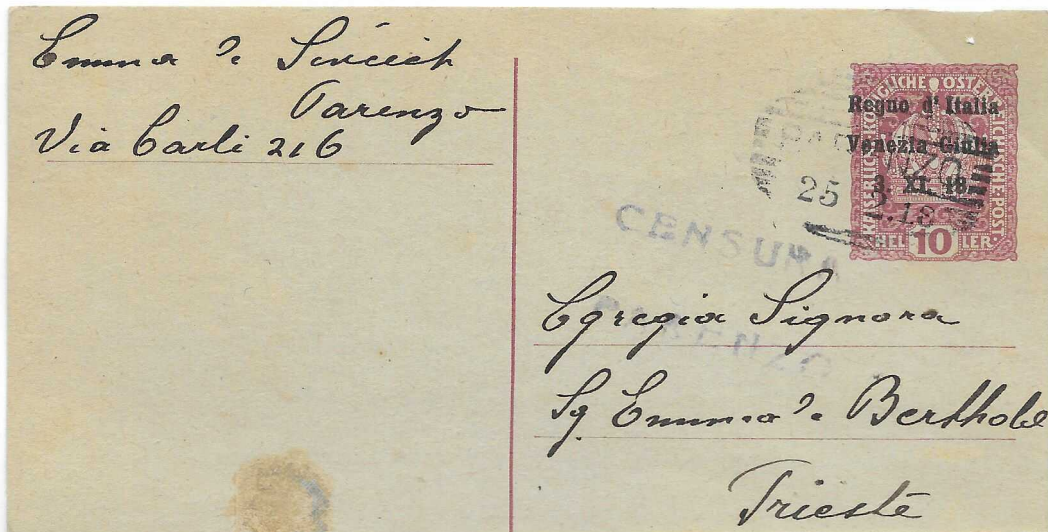 Emma de
Parenzo
Via Carli 216
KAISERLICHE KÖNIGLICHE ÖSTERREICHISCHE POST
Regno d'Italia
Venezia Giulia
3. XI. 18.
25 2.18
HELLER 10
CENSURA
PARENZO
Egregia Signora
Sg Emma de Berthold
Trieste